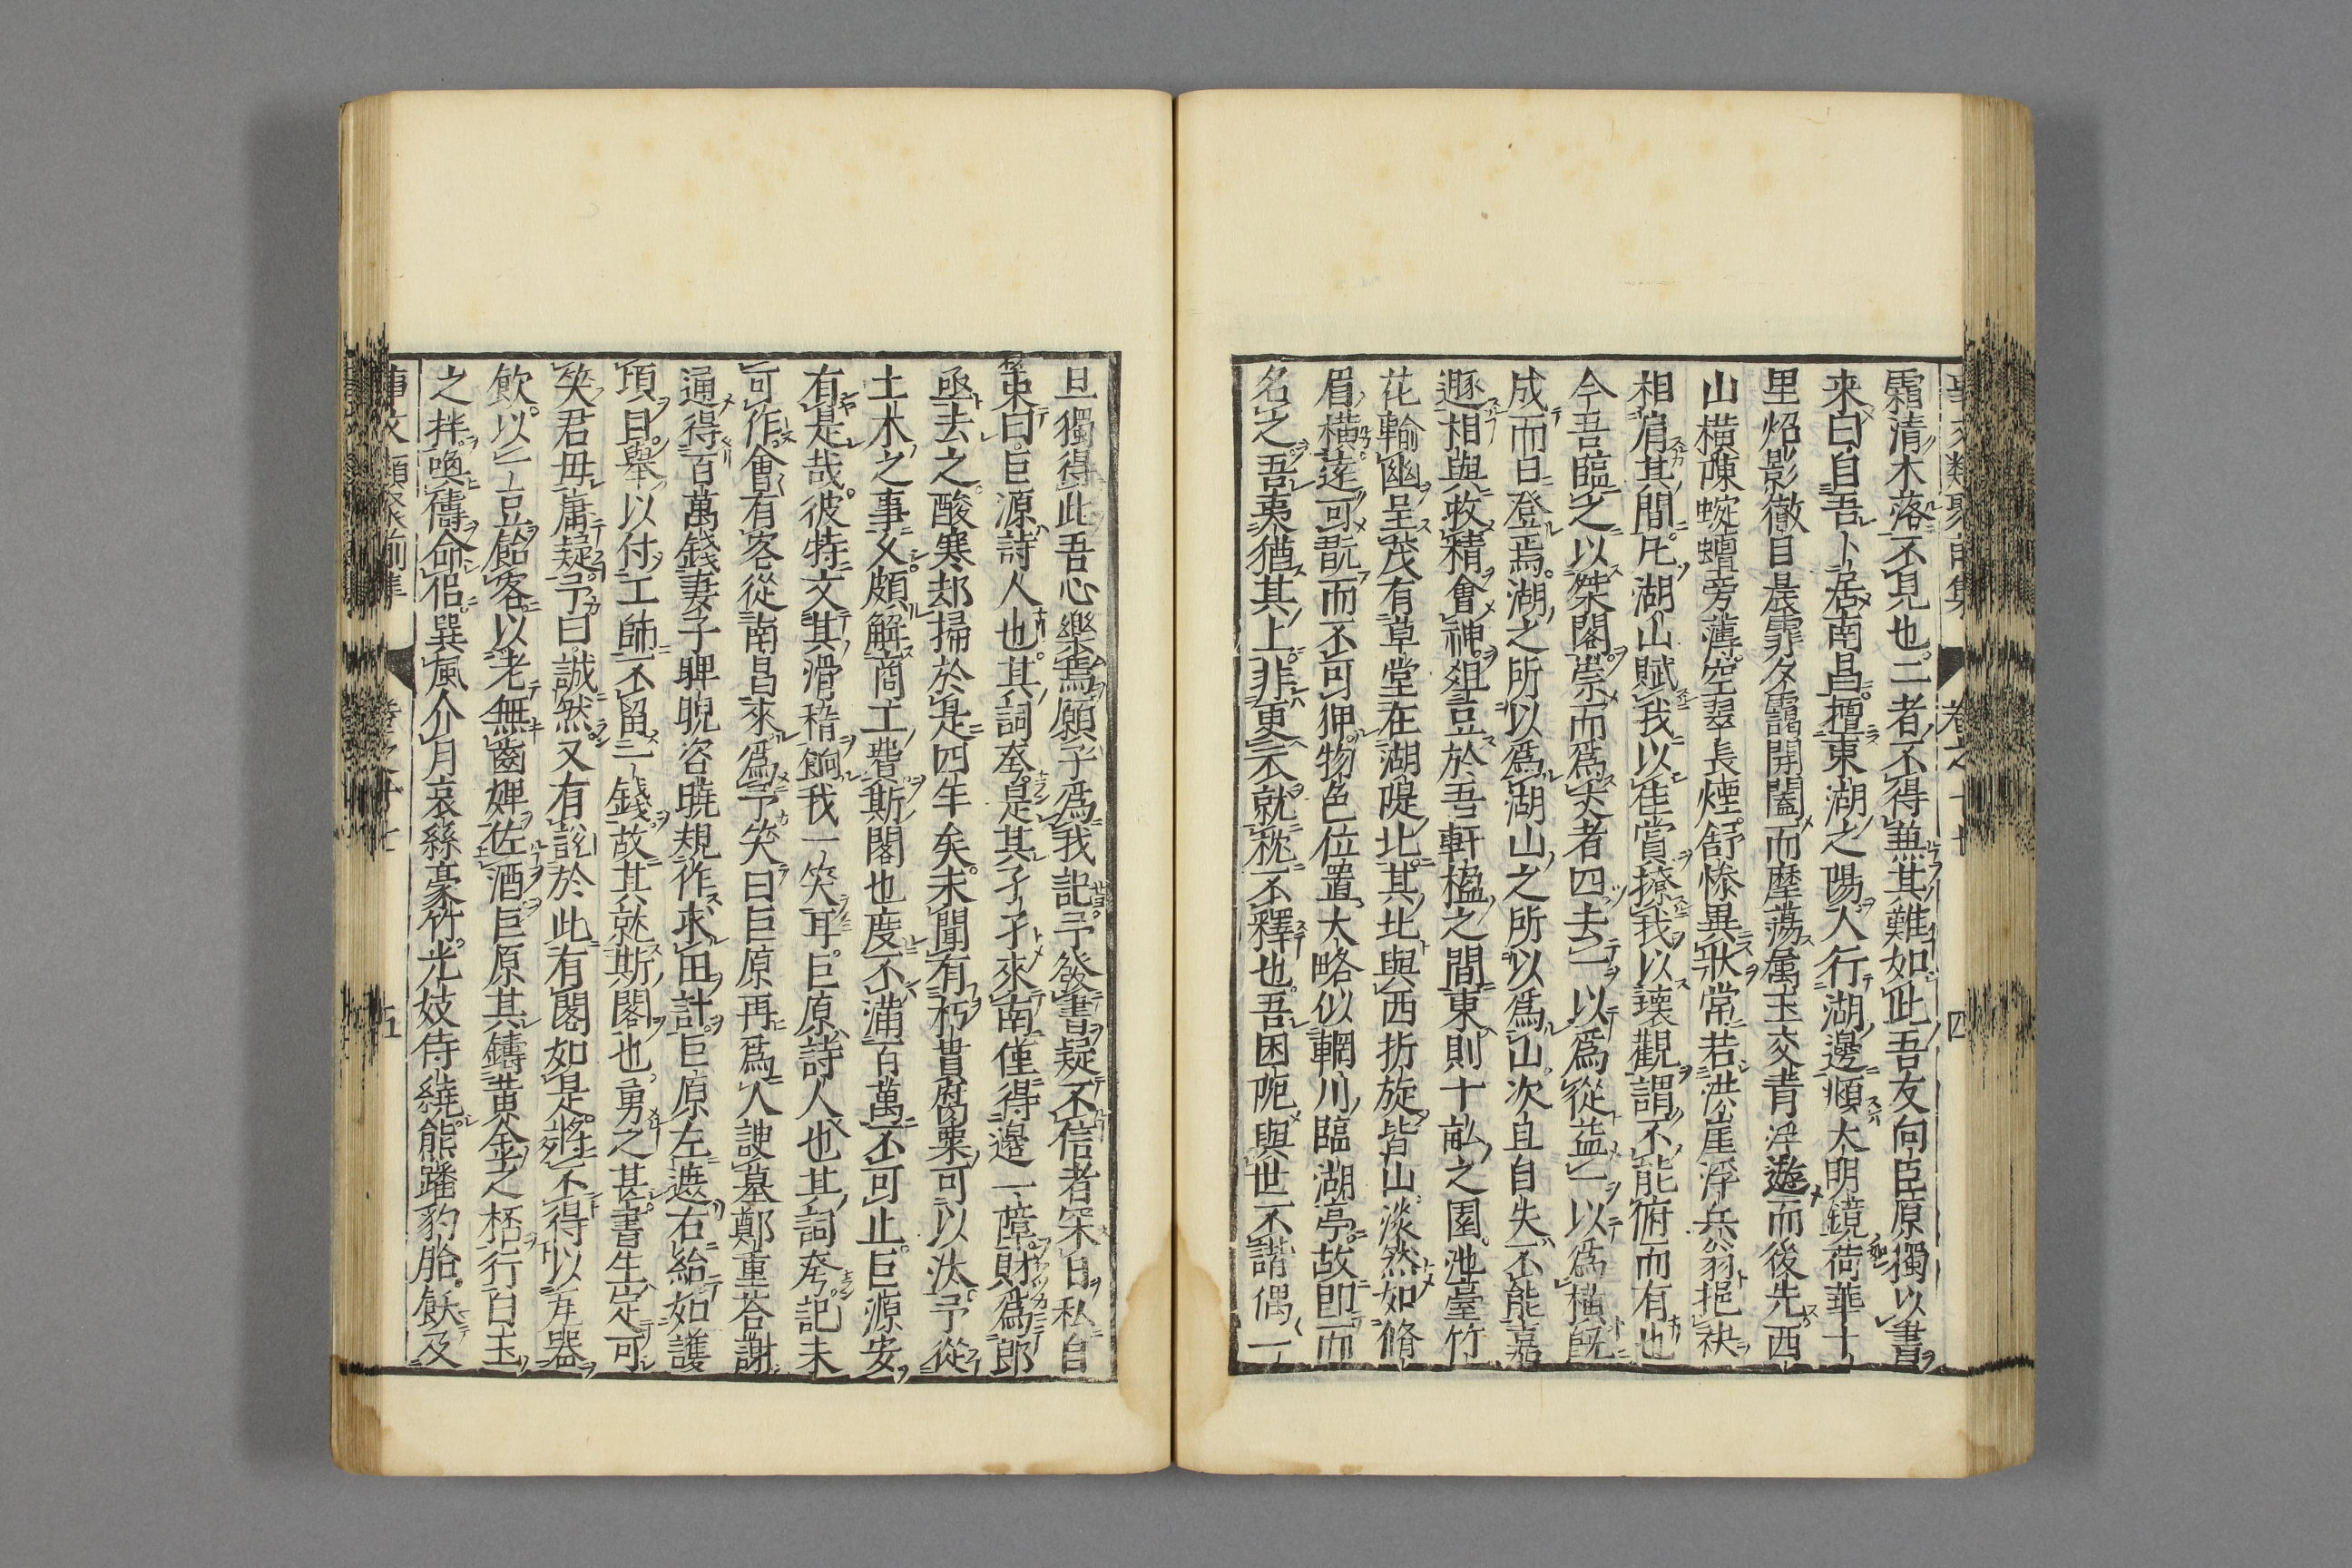 事文類聚前集 卷之十七 四
霜清木落不見也二者不得無其難如此吾友向巨原獨以書
来曰自吾卜居南昌擅東湖之陽人行湖邊順太明鏡荷華十
里炤影徹目晨霏夕靄開闔而摩蕩属玉交青浮遊而後先西
山横陳蜿蟺旁薄空翠長煙舒慘異状常若洪崖浮丘翁挹袂
相肩其間凡湖山賦我以佳賞撩我以壊觀謂不能俯而有也
今吾臨之以桀閣崇而爲丈者四去一以爲從益一以爲横既
成而日登焉湖之所以爲湖山之所以爲山次且自失不能嘉
遯相與收精會神俎豆於吾軒楹之間東則十畝之園池臺竹
花輸幽呈茂有草堂在湖隄北其北與西折旋皆山淡然如脩
眉横逹可翫而不可狎物色位置大略似輞川臨湖亭故即而
名之吾夷猶其上非更衣就枕不釋也吾困阨與世不諧偶一
旦獨得此吾心樂焉願子爲我記之予發書疑不信者宋白私自
束曰巨源詩人也其詞夸是其孑孑來南僅得邊一障財爲郎
亟去之酸寒却掃於是四年矣未聞有朽貫腐粟可以汰予從
土木之事义頗解商工費斯閣也度不滿百萬不可止巨源安
有是哉彼特文其滑稽餉我一笑耳巨原詩人也其詞夸記未
可作會有客從南昌來爲予笑曰巨原再爲人諛墓鄭重荅謝
通得百萬錢妻子睥睨咨曉規作求田計巨原左遮右紿如護
頭目舉以付工師不留一錢故其就斯閣也勇之甚書生定可
笑君毋庸疑予曰誠然又有訟於此有閣如是將不得以瓦器
飲以一豆餡客以老無齒婢佐酒巨原其鑄黄金之桮行白玉
之拌喚儔命侶巽風介月哀絲豪竹光妓侍繞熊蹯豹胎飫及
事文類聚前集 卷之十七 五